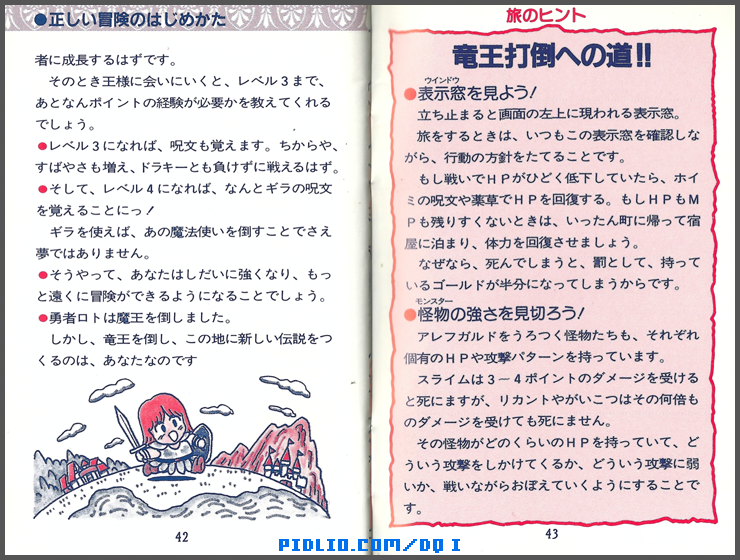 ●正しい冒険のはじめかた
者に成長するはずです。
そのとき王様に会いにいくと、レベル3まで、
あとなんポイントの経験が必要かを教えてくれる
でしょう。
●レベル3になれば、呪文も覚えます。ちからや、
すばやさも増え、ドラキーとも負けずに戦えるはず。
●そして、レベル4になれば、なんとギラの呪文
を覚えることにっ！
ギラを使えば、あの魔法使いを倒すことでさえ
夢ではありません。
●そうやって、あなたはしだいに強くなり、もっ
と遠くに冒険ができるようになることでしょう。
●勇者ロトは魔王を倒しました。
しかし、竜王を倒し、この地に新しい伝説をつ
くるのは、あなたなのです
42
旅のヒント
竜王打倒への道!!
ウインドウ
●表示窓を見よう！
立ち止まると画面の左上に現われる表示窓。
旅をするときは、いつもこの表示窓を確認しな
がら、行動の方針をたてることです。
もし戦いでHPがひどく低下していたら、ホイ
ミの呪文や薬草でHPを回復する。もしHPもM
Pも残りすくないときは、いったん町に帰って宿
屋に泊まり、体力を回復させましょう。
なぜなら、死んでしまうと、罰として、持って
いるゴールドが半分になってしまうからです。
モンスター
●怪物の強さを見切ろう！
アレフガルドをうろつく怪物たちも、それぞれ
個有のHPや攻撃パターンを持っています。
スライムは3－4ポイントのダメージを受ける
と死にますが、リカントやがいこつはその何倍も
のダメージを受けても死にません。
その怪物がどのくらいのHPを持っていて、ど
ういう攻撃をしかけてくるか、どういう攻撃に弱
いか、戦いながらおぼえていくようにすることで
す。
43
PIDLIO.COM/DQ I